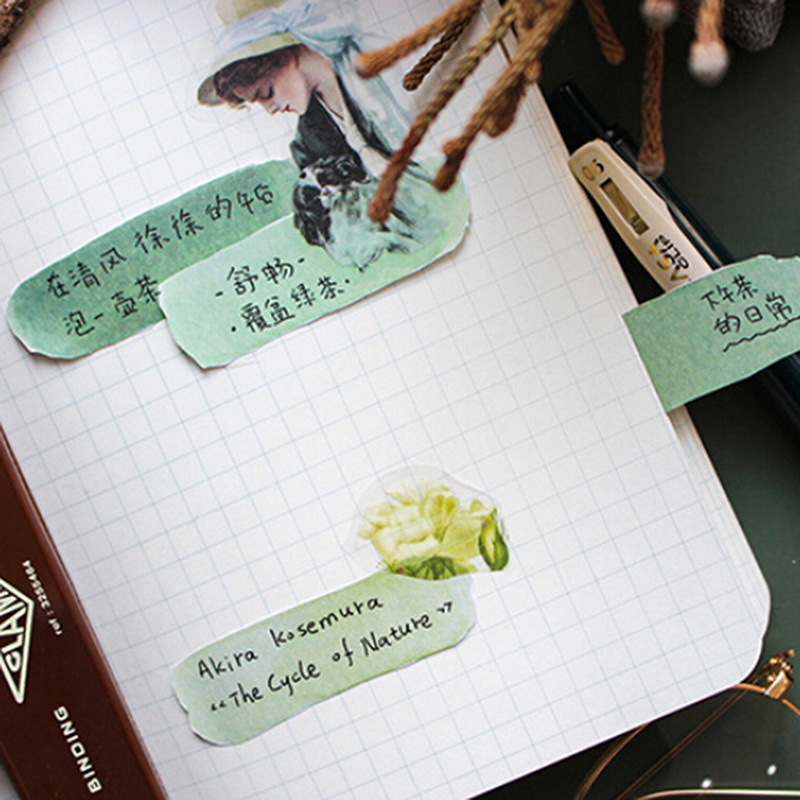 在清风徐徐的午后
泡一壶茶
-舒畅-
·覆盆绿茶·
下午茶
的日常
Akira Kosemura
“The Cycle of Nature”
0.5
ref : 3255464
BINDING